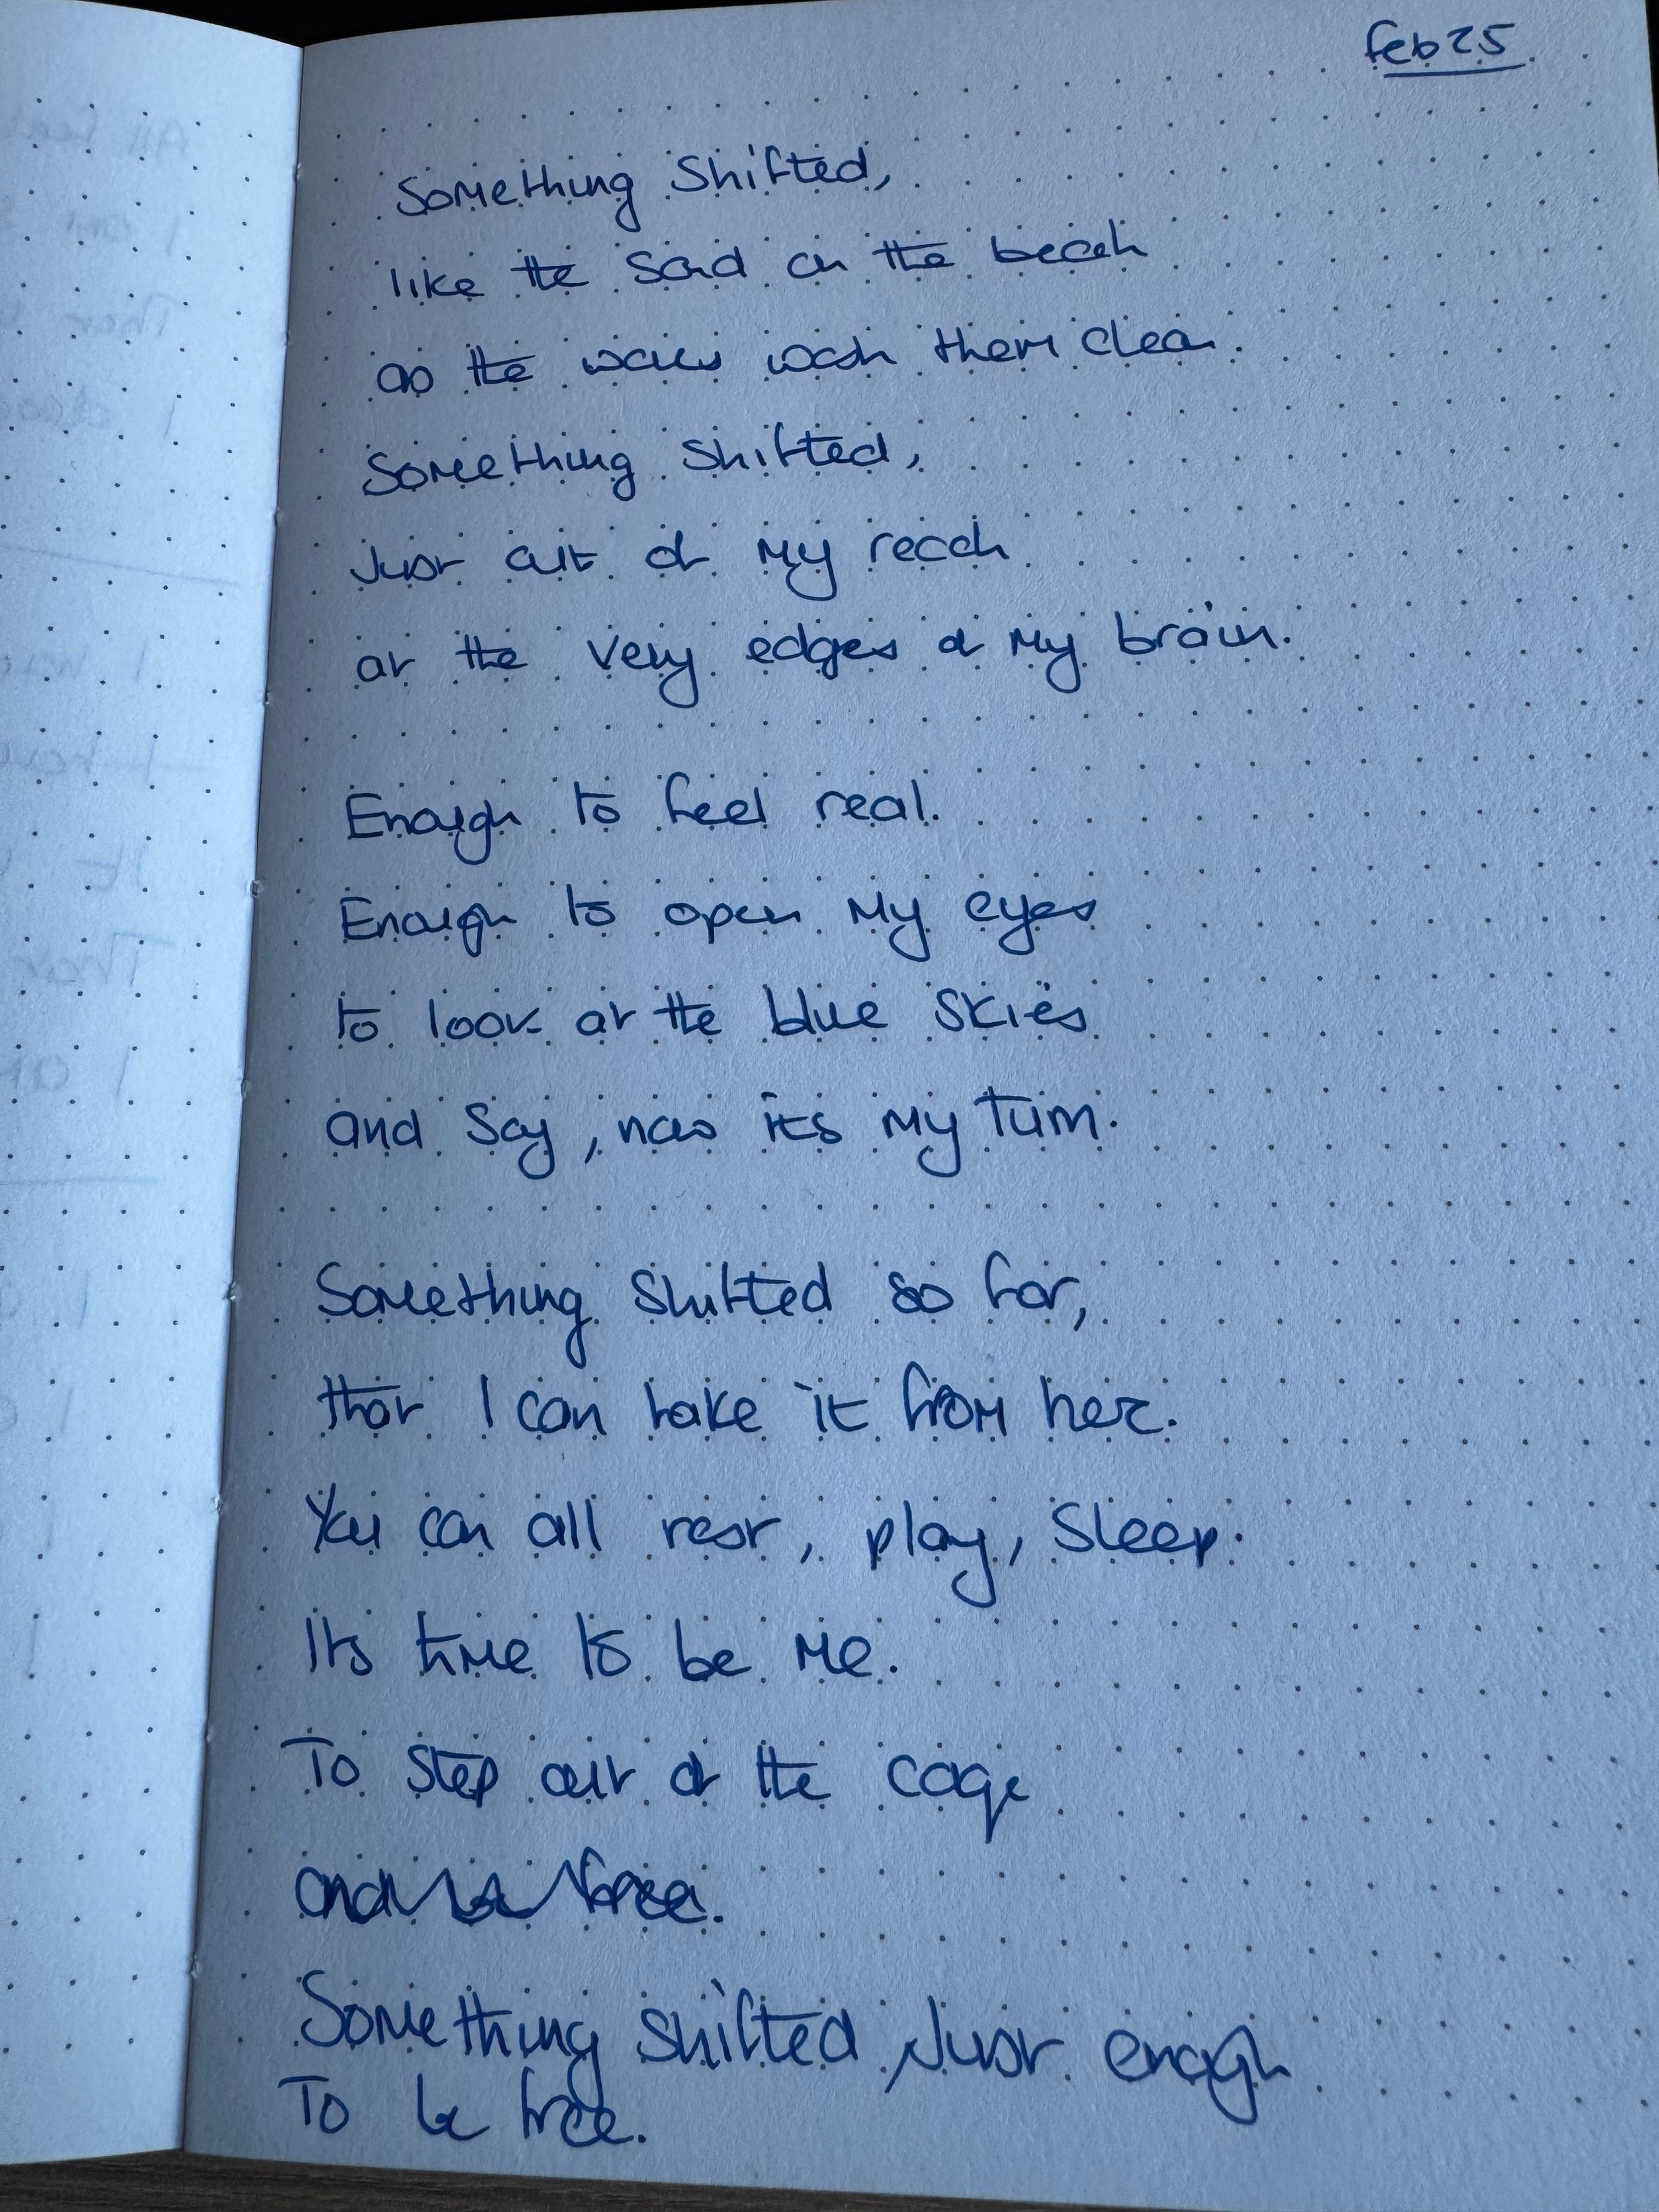 Feb 25
Something Shifted,
like the sand on the beach
as the waves wash them clean.
Something Shifted,
Just out of my reach
at the very edges of my brain.
Enough to feel real.
Enough to open my eyes
to look at the blue skies
and say, now its my turn.
Something Shifted so far,
that I can take it from her.
You can all rest, play, sleep.
Its time to be me.
To step out of the cage
and be free.
Something shifted, Just enough
To be free.